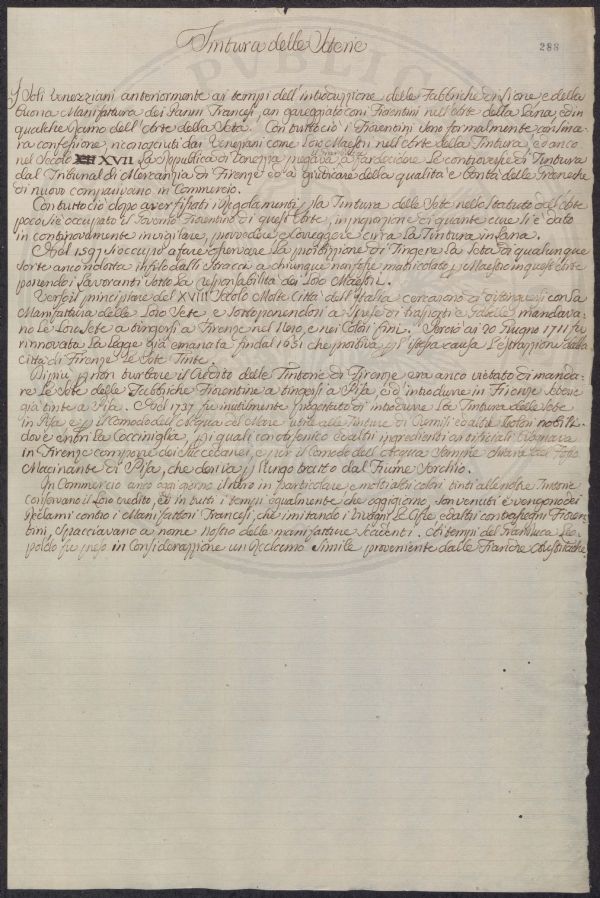 Tintura delle Seterie
288
I Soli Veneziani anteriormente ai tempi dell'introduzzione delle Fabbriche di Lione e della
buona Manifattura dei Panni Francesi, an gareggiato con i Fiorentini nell'Arte della Lana, ed in
qualche Ramo dell'Arte della Seta. Con tuttociò i Fiorentini sono formalmente con
confessione, riconosciuti dai Veneziani come Loro Maestri nell'Arte della Tintura, ed anco
nel Secolo XVII La Repubblica di Venezia pregava a far decidere Le controversie di Tintura
dal Tribunal di Mercanzia di Firenze ed a giudicare della qualità e bontà delle
di nuovo comparivano in Commercio.
Con tuttociò dopo aver fissati i Regolamenti p la Tintura delle Sete nello Statuto dell'Arte
poco si è occupato il Governo Fiorentino di quest'Arte, in proporzione di quante cure si è dato
in continovamente invigilare, provvedere e correggere circa La Tintura in Lana.
Nel 1597 si occupò a fare osservare La proibizione di Tingere La Seta di qualunque
sorte ancor ridotta in filo dalli Stracci a chiunque non fosse matricolato p Maestro in quest'Arte
ponendo i Lavoranti sotto La responsabilità dei Loro Maestri.
Verso il principiare del XVIII Secolo Molte Città dell'Italia cercavano di distinguersi con la
Manifattura delle Loro Sete, e sottoponendosi a Spese di trasporti e Gabelle, mandava-
no Le Loro Sete a tingersi a Firenze nel Nero, e nei Colori fini. Perciò ai 20 Giugno 1711 fu
rinnovata La Legge già emanata fin dal 1651 che proibiva p l'istessa causa L'estrazzione dalla
Città di Firenze Le Sete Tinte.
Di più p non turbare il Credito delle Tintorie di Firenze era anco vietato di manda-
re Le Sete delle Fabbriche Fiorentine a tingersi a Pisa, e d'introdurre in Firenze Seterie
già tinte a Pisa. Nel 1737 fu inutilmente progettato di introdurre La Tintura delle Sete
in Pisa, e p il Comodo dell'Acqua del Mare utile alle Tinture di Cremisi ed altri Colori nobili
dov'è entri La Cocciniglia, p i quali con arsenico ed altri ingredienti artificiali bisognava
in Firenze comporre dei succedanei, e per il Comodo dell'Acqua Sempre chiara del Fosso
Macinante di Pisa, che deriva p lungo tratto dal Fiume Serchio.
In Commercio anco oggi giorno il Nero in particolare e molti altri colori tinti alle nostre Tintorie
conservano il Loro credito, ed in tutti i tempi egualmente che oggigiorno, son venuti e vengono dei
Reclami contro i Manifattori Francesi, che imitando i disegni Le Cifre ed altri contrassegni Fioren-
tini, spacciavano a nome nostro delle manifatture scadenti. Ai tempi del Granduca Leo-
poldo fu preso in Considerazzione un Reclamo Simile proveniente dalle Fiandre Austriache.